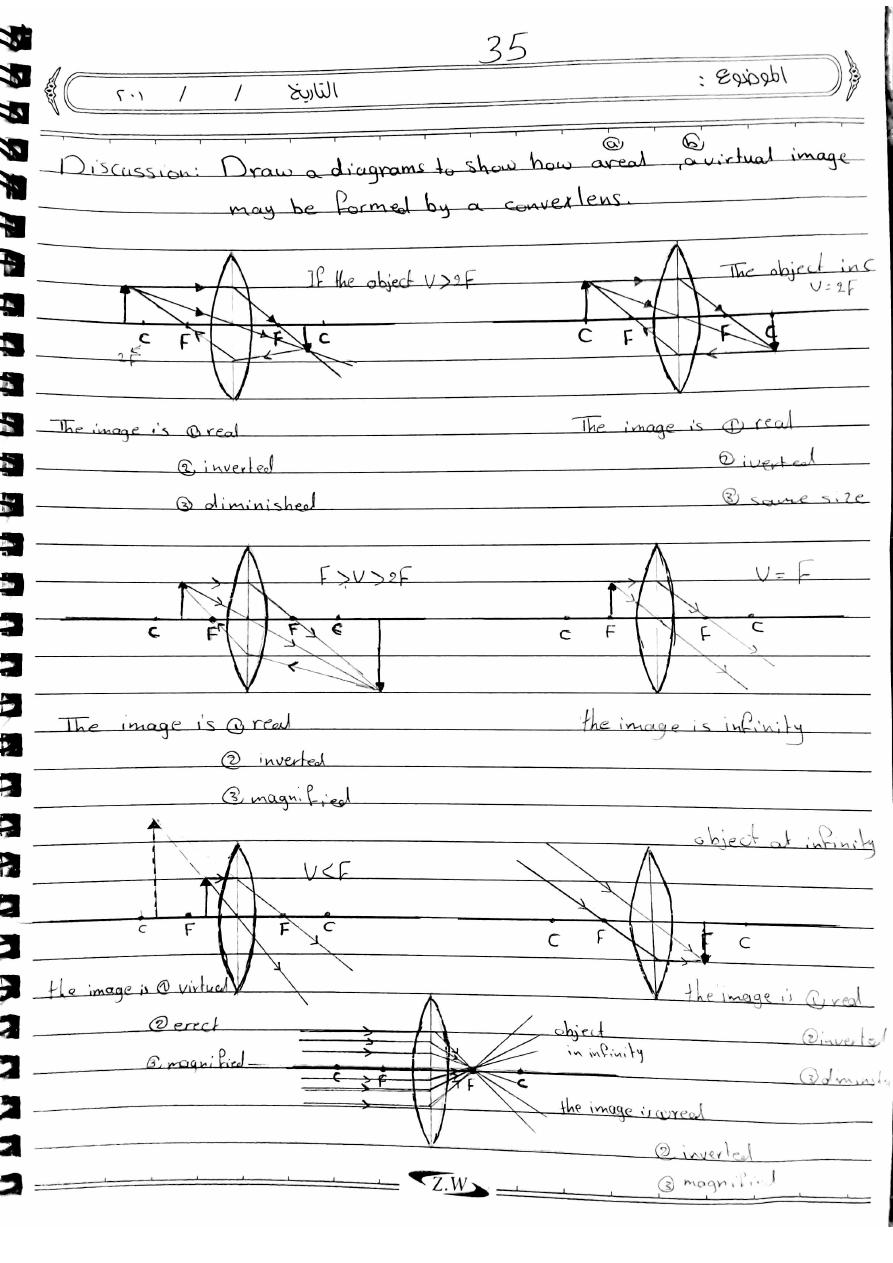 35
الموضوع :
التاريخ / / ٢٠١
ⓐ ⓑ
Discussion: Draw a diagrams to show how areal , a virtual image
may be formed by a convex lens.
If the object V>2F
C F F C
2F
The object in C
V=2F
C F F C
The image is ① real
② inverted
③ diminished
The image is ① real
② iverted
③ same size
F>V>2F
C F F C
V = F
C F F C
The image is ① real
② inverted
③ magnified
the image is infinity
V<F
C F F C
object at infinity
C F F C
the image is ① virtual
② erect
③ magnified
the image is ① real
② inverted
object
in infinity
C F F C
the image is a real
② inverted
③ magnified
Z.W